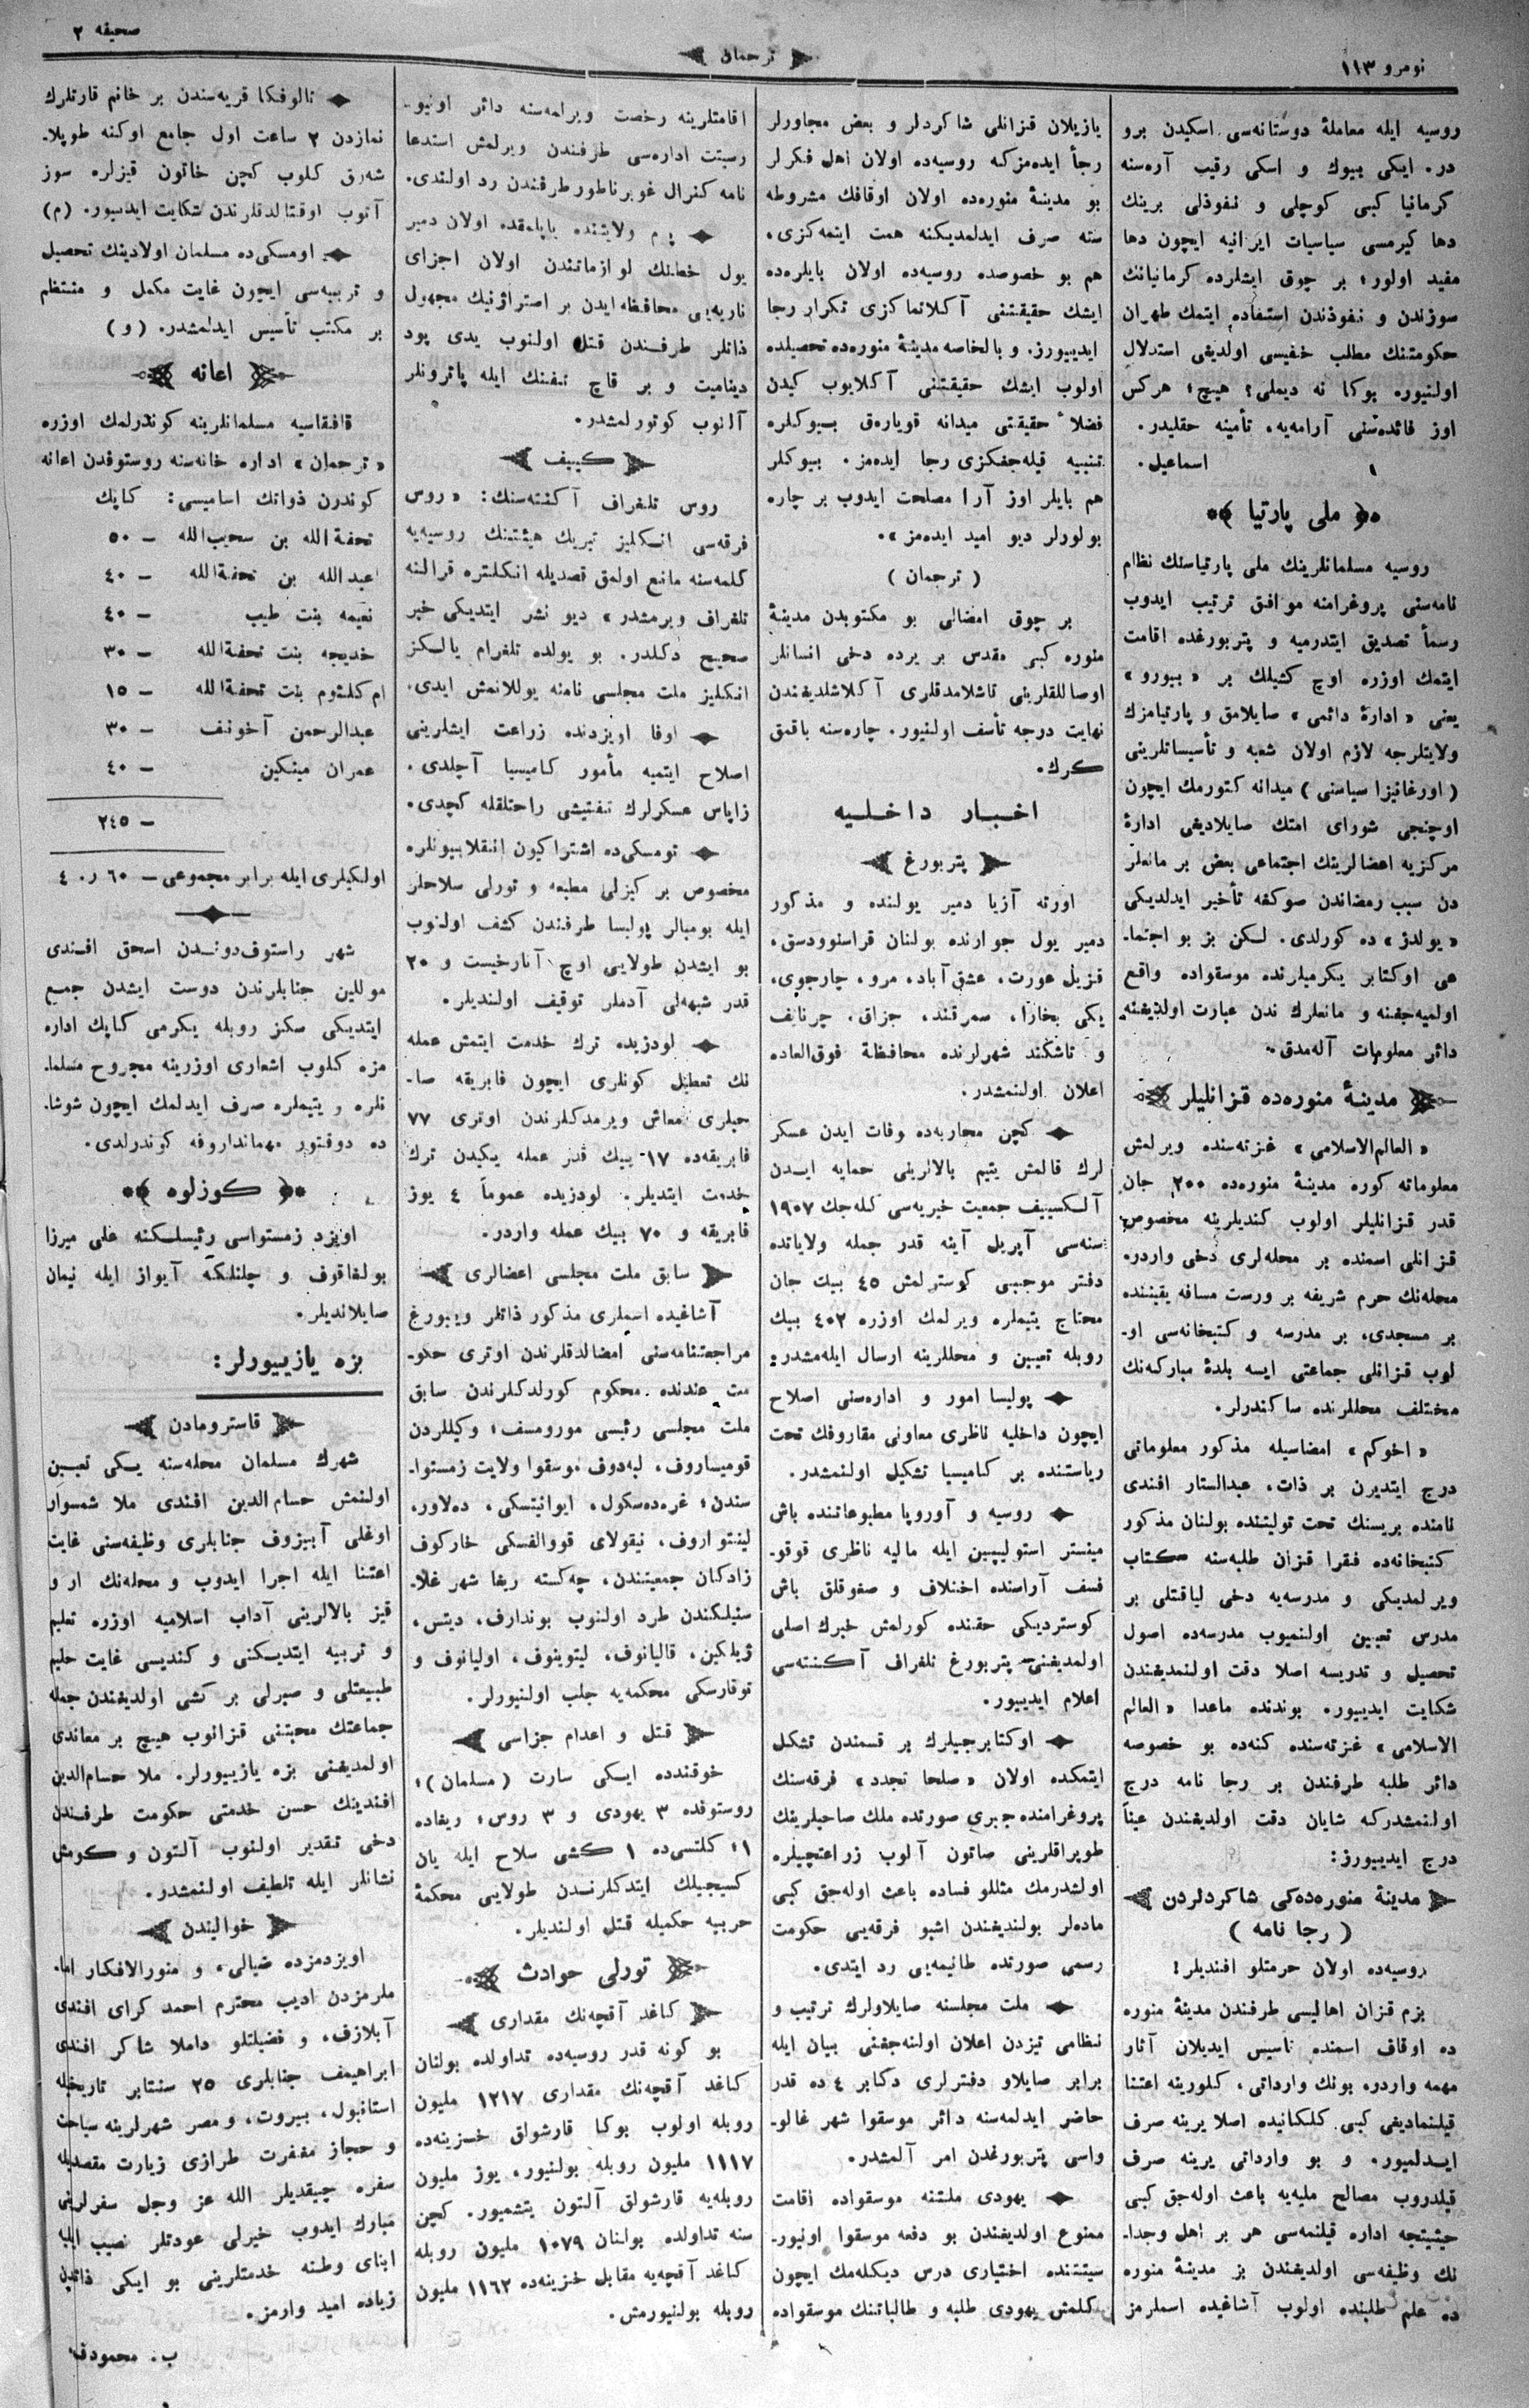 نومرو ١١٣
ترجمان
صحيفه ٢
روسيه ايله معاملهٔ دوستانه‌سی اسكيدن برو
در. ايكی بيوك و اسكی رقيب آره‌سنه
كرمانيا كبی كوچلی و نفوذلی برينك
دها كيرمسی سياسيات ايرانيه ايچون دها
مفيد اولور؛ بر چوق ايشلرده كرمانيانك
سوزندن و نفوذندن استفاده ايتمك طهران
حكومتنك مطلب خفيسی اولديغی استدلال
اولنيور. بوكا نه ديملی؟ هيچ؛ هركس
اوز فائده‌سنی آرامه‌يه، تأمينه حقليدر.
اسماعيل.
ملی پارتيا
روسيه مسلمانلرينك ملی پارتياسنك نظام
نامه‌سنی پروغرامنه موافق ترتيب ايدوب
رسماً تصديق ايتدرميه و پتربورغده اقامت
ايتمك اوزره اوچ كشيلك بر «بيورو»
يعنی «ادارهٔ دائمی» صايلامق و پارتيامزك
ولايتلرجه لازم اولان شعبه و تأسيساتلرينی
(اورغانيزا سياسنی) ميدانه كتورمك ايچون
اوچنجی شورای امتك صايلاديغی ادارهٔ
مركزيه اعضالرينك اجتماعی بعض بر مانعلر
دن سبب رمضاندن صوكغه تأخير ايدلديكی
«يولدز» ده كورلدی. لكن بز بو اجتما-
عی اوكتابر يكرميلرنده موسقواده واقع
اولميه‌جغنه و مانعلرك ندن عبارت اولديغنه
دائر معلومات آله‌مدق.
مدينهٔ منوره‌ده قزانليلر
«العالم‌الاسلامی» غزته‌سنده ويرلمش
معلوماته كوره مدينهٔ منوره‌ده ٢٠٠ جان
قدر قزانليلر اولوب كنديلرينه مخصوص
قزانلی اسمنده بر محله‌لری دخی واردر.
محله‌نك حرم شريفه بر ورست مسافه يقيننده
بر مسجدی، بر مدرسه و كتبخانه‌سی او-
لوب قزانلی جماعتی ايسه بلدهٔ مباركه‌نك
مختلف محللرنده ساكندرلر.
«اخوكم» امضاسيله مذكور معلوماتی
درج ايتديرن بر ذات، عبدالستار افندی
نامنده بريسنك تحت توليتنده بولنان مذكور
كتبخانه‌ده فقرا قزان طلبه‌سنه كتاب
ويرلمديكی و مدرسه‌يه دخی لياقتلی بر
مدرس تعيين اولنميوب مدرسه‌ده اصول
تحصيل و تدريسه اصلا دقت اولنمديغندن
شكايت ايدييور. بوندنده ماعدا «العالم
الاسلامی» غزته‌سنده كنه‌ده بو خصوصه
دائر طلبه طرفندن بر رجا نامه درج
اولنمشدركه شايان دقت اولديغندن عيناً
درج ايدييورز:
مدينهٔ منوره‌ده‌كی شاكردلردن
(رجا نامه)
روسيه‌ده اولان حرمتلو افنديلر!
بزم قزان اهاليسی طرفندن مدينهٔ منوره
ده اوقاف اسمنده تأسيس ايديلان آثار
مهمه واردر. بونك وارداتی، كلورينه اعتنا
قيلنماديغی كبی كلكانيده اصلا يرينه صرف
ايدلميور. و بو وارداتی يرينه صرف
قيلدروب مصالح مليه‌يه باعث اوله‌جق كبی
حيثيتجه اداره قيلنمه‌سی هر بر اهل وجدا-
نك وظيفه‌سی اولديغندن بز مدينهٔ منوره
ده علم طلبنده اولوب آشاغيده اسملرمز
يازيلان قزانلی شاكردلر و بعض مجاورلر
رجأ ايده‌مزكه روسيه‌ده اولان اهل فكرلر
بو مدينهٔ منوره‌ده اولان اوقافك مشروطه
سنه صرف ايدلمديكنه همت ايتمه‌كزی،
هم بو خصوصده روسيه‌ده اولان بايلره‌ده
ايشك حقيقتنی آكلاتماكزی تكرار رجا
ايدييورز. و بالخاصه مدينهٔ منوره‌ده تحصيلده
اولوب ايشك حقيقتنی آكلايوب كيدن
فضلأ حقيقتی ميدانه قوياره‌ق بيوكلره
تنبيه قيله‌جفكزی رجا ايده‌مز. بيوكلر
هم بايلر اوز آرا مصلحت ايدوب بر چاره
بولورلر ديو اميد ايده‌مز».
(ترجمان)
بر چوق امضالی بو مكتوبدن مدينهٔ
منوره كبی مقدس بر يرده دخی انسانلر
اوصاللقلرينی تاشلامدقلری آكلاشلديغندن
نهايت درجه تأسف اولنيور. چاره‌سنه باقمق
كرك.
اخبار داخليه
پتربورغ
اورته آزيا دمير يولنده و مذكور
دمير يول جوارنده بولنان قراسنوودسق،
قزيل عورت، عشق آباد، مرو، چارجوی،
يكی بخارا، سمرقند، جزاق، چرنايف
و تاشكند شهرلرنده محافظهٔ فوق‌العاده
اعلان اولنمشدر.
كچن محاربه‌ده وفات ايدن عسكر
لرك قالمش يتيم بالالرينی حمايه ايدن
آلكسييف جمعيت خيريه‌سی كله‌جك ١٩٠٧
سنه‌سی آپريل آينه قدر جمله ولاياتده
دفتر موجبی كوسترلمش ٤٥ بيك جان
محتاج يتيملره ويرلمك اوزره ٤٠٢ بيك
روبله تعيين و محللرينه ارسال ايله‌مشدر.
پوليسا امور و اداره‌سنی اصلاح
ايچون داخليه ناظری معاونی مقاروفك تحت
رياستنده بر كاميسيا تشكيل اولنمشدر.
روسيه و آوروپا مطبوعاتنده باش
مينستر استوليپين ايله ماليه ناظری قوقو-
فسف آراسنده اختلاف و صغوقلق باش
كوسترديكی حقنده كورلمش خبرك اصلی
اولمديغنی پتربورغ تلغراف آكنته‌سی
اعلام ايدييور.
اوكتابرجيلرك بر قسمندن تشكل
ايتمكده اولان «صلحا تجدد» فرقه‌سنك
پروغرامنده جبری صورتده ملك صاحبلرينك
طوپراقلرينی صاتون آلوب زراعتچيلره
اولشدرمك مثللو فساده باعث اوله‌جق كبی
ماده‌لر بولنديغندن اشبو فرقه‌يی حكومت
رسمی صورتده طانيمه‌يی رد ايتدی.
ملت مجلسنه صايلاولرك ترتيب و
نظامی تيزدن اعلان اولنه‌جغنی بيان ايله
برابر صايلاو دفترلری دكابر ٤ ده قدر
حاضر ايدلمه‌سنه دائر موسقوا شهر غالو-
واسی پتربورغدن امر آلمشدر.
يهودی ملتنه موسقواده اقامت
ممنوع اولديغندن بو دفعه موسقوا اونيور-
سيتتنده اختياری درس ديكله‌مك ايچون
كلمش يهودی طلبه و طالباتنك موسقواده
اقامتلرينه رخصت ويرلمه‌سنه دائر اونيو-
رسيتت اداره‌سی طرفندن ويرلمش استدعا
نامه كنرال غوبرناطور طرفندن رد اولندی.
پرم ولايتنده ياپلمقده اولان دمير
يول خطنك لوازماتندن اولان اجزای
ناريه‌يی محافظه ايدن بر استراژنيك مجهول
ذاتلر طرفندن قتل اولنوب يدی پود
ديناميت و بر قاچ تفنك ايله پاترونلر
آلنوب كوتورلمشدر.
كييف
روس تلغراف آكنته‌سنك: «روس
فرقه‌سی انكليز تبريك هيئتنك روسيه‌يه
كلمه‌سنه مانع اولمق قصديله انكلتره قرالنه
تلغراف ويرمشدر» ديو نشر ايتديكی خبر
صحيح دكلدر. بو يولده تلغرام يالكز
انكليز ملت مجلسی نامنه يوللانمش ايدی.
اوفا اويزدنده زراعت ايشلرينی
اصلاح ايتميه مأمور كاميسيا آچلدی.
زاپاس عسكرلرك تفتيشی راحتلقله كچدی.
تومسكی‌ده اشتراكيون انقلابيونلره
مخصوص بر كيزلی مطبعه و تورلی سلاحلر
ايله بومبالر پوليسا طرفندن كشف اولنوب
بو ايشدن طولايی اوچ آنارخيست و ٢٠
قدر شبهه‌لی آدملر توقيف اولنديلر.
لودزيده ترك خدمت ايتمش عمله
نك تعطيل كونلری ايچون فابريقه صا-
حبلری معاش ويرمدكلرندن اوتری ٧٧
فابريقه‌ده ١٧ بيك قدر عمله يكيدن ترك
خدمت ايتديلر. لودزيده عموماً ٤ يوز
فابريقه و ٧٠ بيك عمله واردر.
سابق ملت مجلسی اعضالری
آشاغيده اسملری مذكور ذاتلر ويبورغ
مراجعتنامه‌سنی امضالدقلرندن اوتری حكو-
مت عندنده محكوم كورلدكلرندن سابق
ملت مجلسی رئيسی مورومسف؛ وكيللردن
قوميساروف، لبه‌دوف موسقوا ولايت زمستوا-
سندن؛ غره‌ده‌سكول، ايوانيتسكی، ده‌لاور،
لينتواروف، نيقولای قووالفسكی خاركوف
زادكان جمعيتندن، چه‌كسته ريغا شهر غلا-
سنيلكندن طرد اولنوب بوندارف، ديتس،
ژيلكين، قاليانوف، ليتوينوف، اوليانوف و
توقارسكی محكمه‌يه جلب اولنيورلر.
قتل و اعدام جزاسی
خوقندده ايكی سارت (مسلمان)؛
روستوفده ٣ يهودی و ٣ روس؛ ريغاده
١؛ كلتسی‌ده ١ كشی سلاح ايله يان
كسيجيلك ايتدكلرندن طولايی محكمهٔ
حربيه حكميله قتل اولنديلر.
تورلی حوادث
كاغد آقچه‌نك مقداری
بو كونه قدر روسيه‌ده تداولده بولنان
كاغد آقچه‌نك مقداری ١٢١٧ مليون
روبله اولوب بوكا قارشولق خزينه‌ده
١١١٧ مليون روبله بولنيور. يوز مليون
روبله‌يه قارشولق آلتون يتشميور. كچن
سنه تداولده بولنان ١٠٧٩ مليون روبله
كاغد آقچه‌يه مقابل خزينه‌ده ١١٦٢ مليون
روبله بولنيورمش.
تالوفكا قريه‌سندن بر خانم قارتلرك
نمازدن ٢ ساعت اول جامع اوكنه طوپلا-
شه‌رق كلوب كچن خاتون قيزلره سوز
آتوب اوقتالدقلرندن شكايت ايدييور. (م)
اومسكی‌ده مسلمان اولادينك تحصيل
و تربيه‌سی ايچون غايت مكمل و منتظم
بر مكتب تأسيس ايدلمشدر. (و)
اعانه
قافقاسيه مسلمانلرينه كوندرلمك اوزره
«ترجمان» اداره خانه‌سنه روستوفدن اعانه
كوندرن ذواتك اساميسی: كاپك
تحفة الله بن سحيب‌الله — ٥٠
عبدالله بن تحفة‌الله — ٤٠
نعيمه بنت طيب — ٤٠
خديجه بنت تحفة‌الله — ٣٠
ام كلثوم بنت تحفة‌الله — ١٥
عبدالرحمن آخونف — ٣٠
عمران مينكين — ٤٠
— ٢٤٥
اولكيلری ايله برابر مجموعی — ٦٠ ر. ٤
شهر راستوف‌دوندن اسحق افندی
موللين جنابلرندن دوست ايشدن جمع
ايتديكی سكز روبله يكرمی كاپك اداره
مزه كلوب اشعاری اوزرينه مجروح مسلما-
نلره و يتيملره صرف ايدلمك ايچون شوشا-
ده دوقتور مهمانداروفه كوندرلدی.
كوزلوه
اويزد زمستواسی رئيسلكنه علی ميرزا
بولغاقوف و جلنلكه آيواز ايله نيمان
صايلانديلر.
بزه يازييورلر:
قاسترومادن
شهرك مسلمان محله‌سنه يكی تعيين
اولنمش حسام‌الدين افندی ملا شمسوار
اوغلی آبيزوف جنابلری وظيفه‌سنی غايت
اعتنا ايله اجرا ايدوب و محله‌نك ار و
قيز بالالرينی آداب اسلاميه اوزره تعليم
و تربيه ايتديكنی و كنديسی غايت حليم
طبيعتلی و صبرلی بر كشی اولديغندن جمله
جماعتك محبتنی قزانوب هيچ بر معاندی
اولمديغنی بزه يازييورلر. ملا حسام‌الدين
افندينك حسن خدمتی حكومت طرفندن
دخی تقدير اولنوب آلتون و كومش
نشانلر ايله تلطيف اولنمشدر.
خوالیندن
اويزدمزده ضيالی، و منورالافكار اما-
ملرمزدن اديب محترم احمد كرای افندی
آبلازف، و فضيلتلو داملا شاكر افندی
ابراهيمف جنابلری ٢٥ سنتابر تاريخيله
استانبول، بيروت، و مصر شهرلرينه سياحت
و حجاز مغفرت طرازی زيارت مقصديله
سفره چيقديلر الله عز وجل سفرلرينی
مبارك ايدوب خيرلی عودتلر نصيب ايليه
ابنای وطنه خدمتلرينی بو ايكی ذاتدن
زياده اميد وارمز.
ب. محمودف